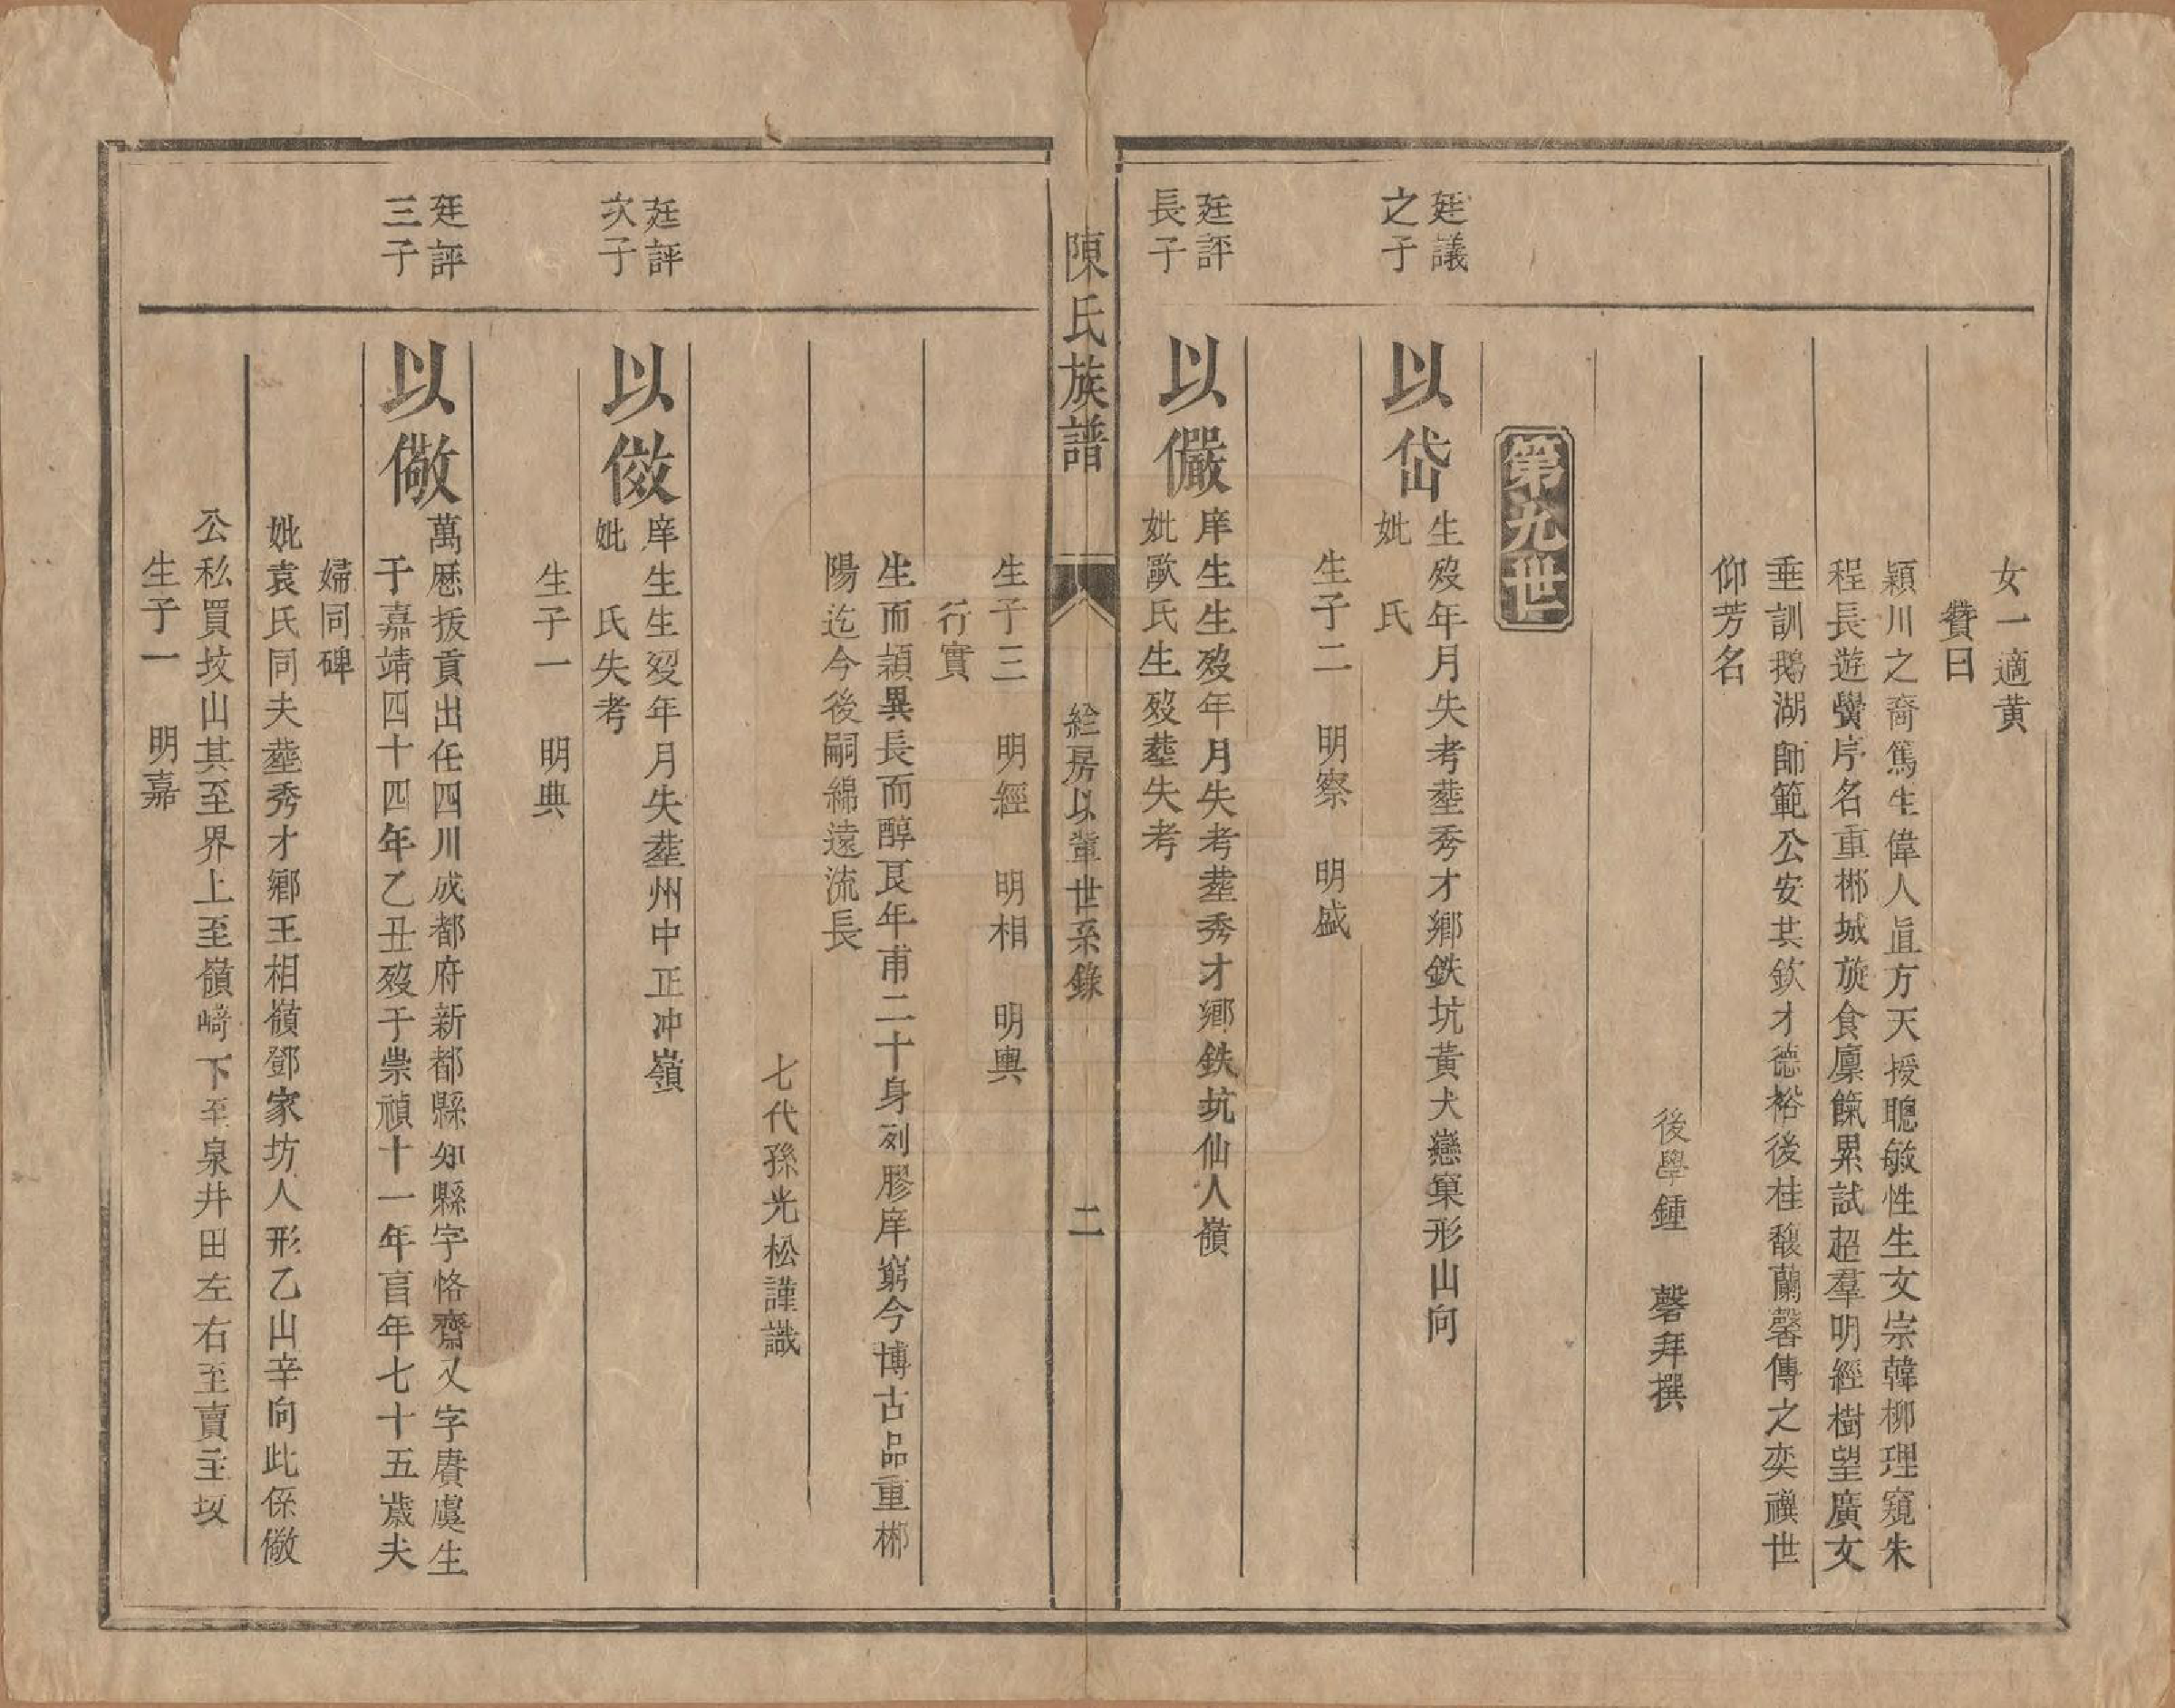 女一適黃
贊曰
穎川之裔篤生偉人直方天授聰敏性生文宗韓柳理窺朱
程長遊黌序名重郴城旋食廩餼累試超羣明經樹望廣文
垂訓鵝湖師範公安其欽才德裕後桂馥蘭馨傳之奕禩世
仰芳名
後學鍾　馨拜撰
第九世
廷議
之子
以岱
生歿年月失考塟秀才鄉鉄坑黃犬戀窠形山向
妣　氏
生子二　明察　明盛
廷評
長子
以儼
庠生生歿年月失考塟秀才鄉鉄坑仙人嶺
妣歐氏生歿塟失考
陳氏族譜
絵房以輩世系錄
二
生子三　明經　明相　明輿
行實
生而穎異長而醇良年甫二十身列膠庠窮今博古品重郴
陽迄今後嗣綿遠流長
七代孫光松謹識
廷評
次子
以傚
庠生生歿年月失塟州中正冲嶺
妣　氏失考
生子一　明典
廷評
三子
以儆
萬厯拔貢出任四川成都府新都縣知縣字恪齋又字賡虞生
于嘉靖四十四年乙丑歿于崇禎十一年亯年七十五歲夫
婦同碑
妣袁氏同夫塟秀才鄉王相嶺鄧家坊人形乙山辛向此係儆
公私買坟山其至界上至嶺崎下至泉井田左右至賣主坟
生子一　明嘉